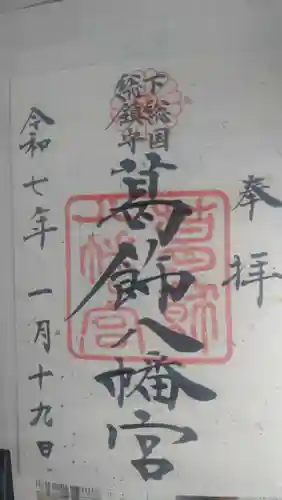 奉拝
下総国
総鎮守
葛飾八幡宮
令和七年一月十九日
葛飾
八幡宮